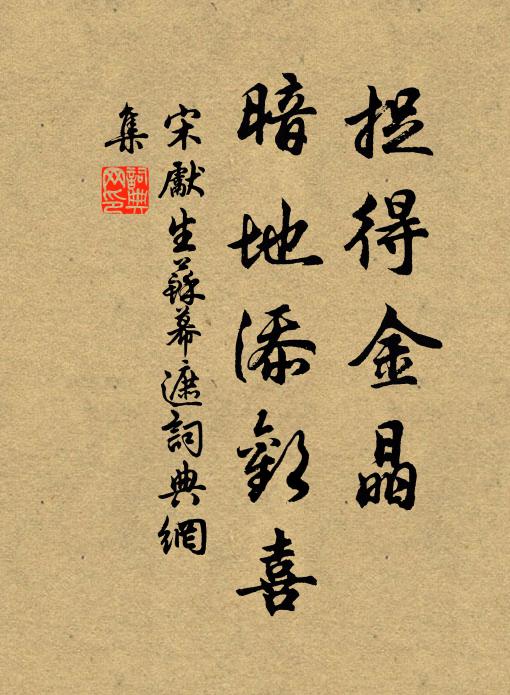 捉得金晶
暗地添歡喜
宋獻生蘇幕遮詞典網
集
詞典网印